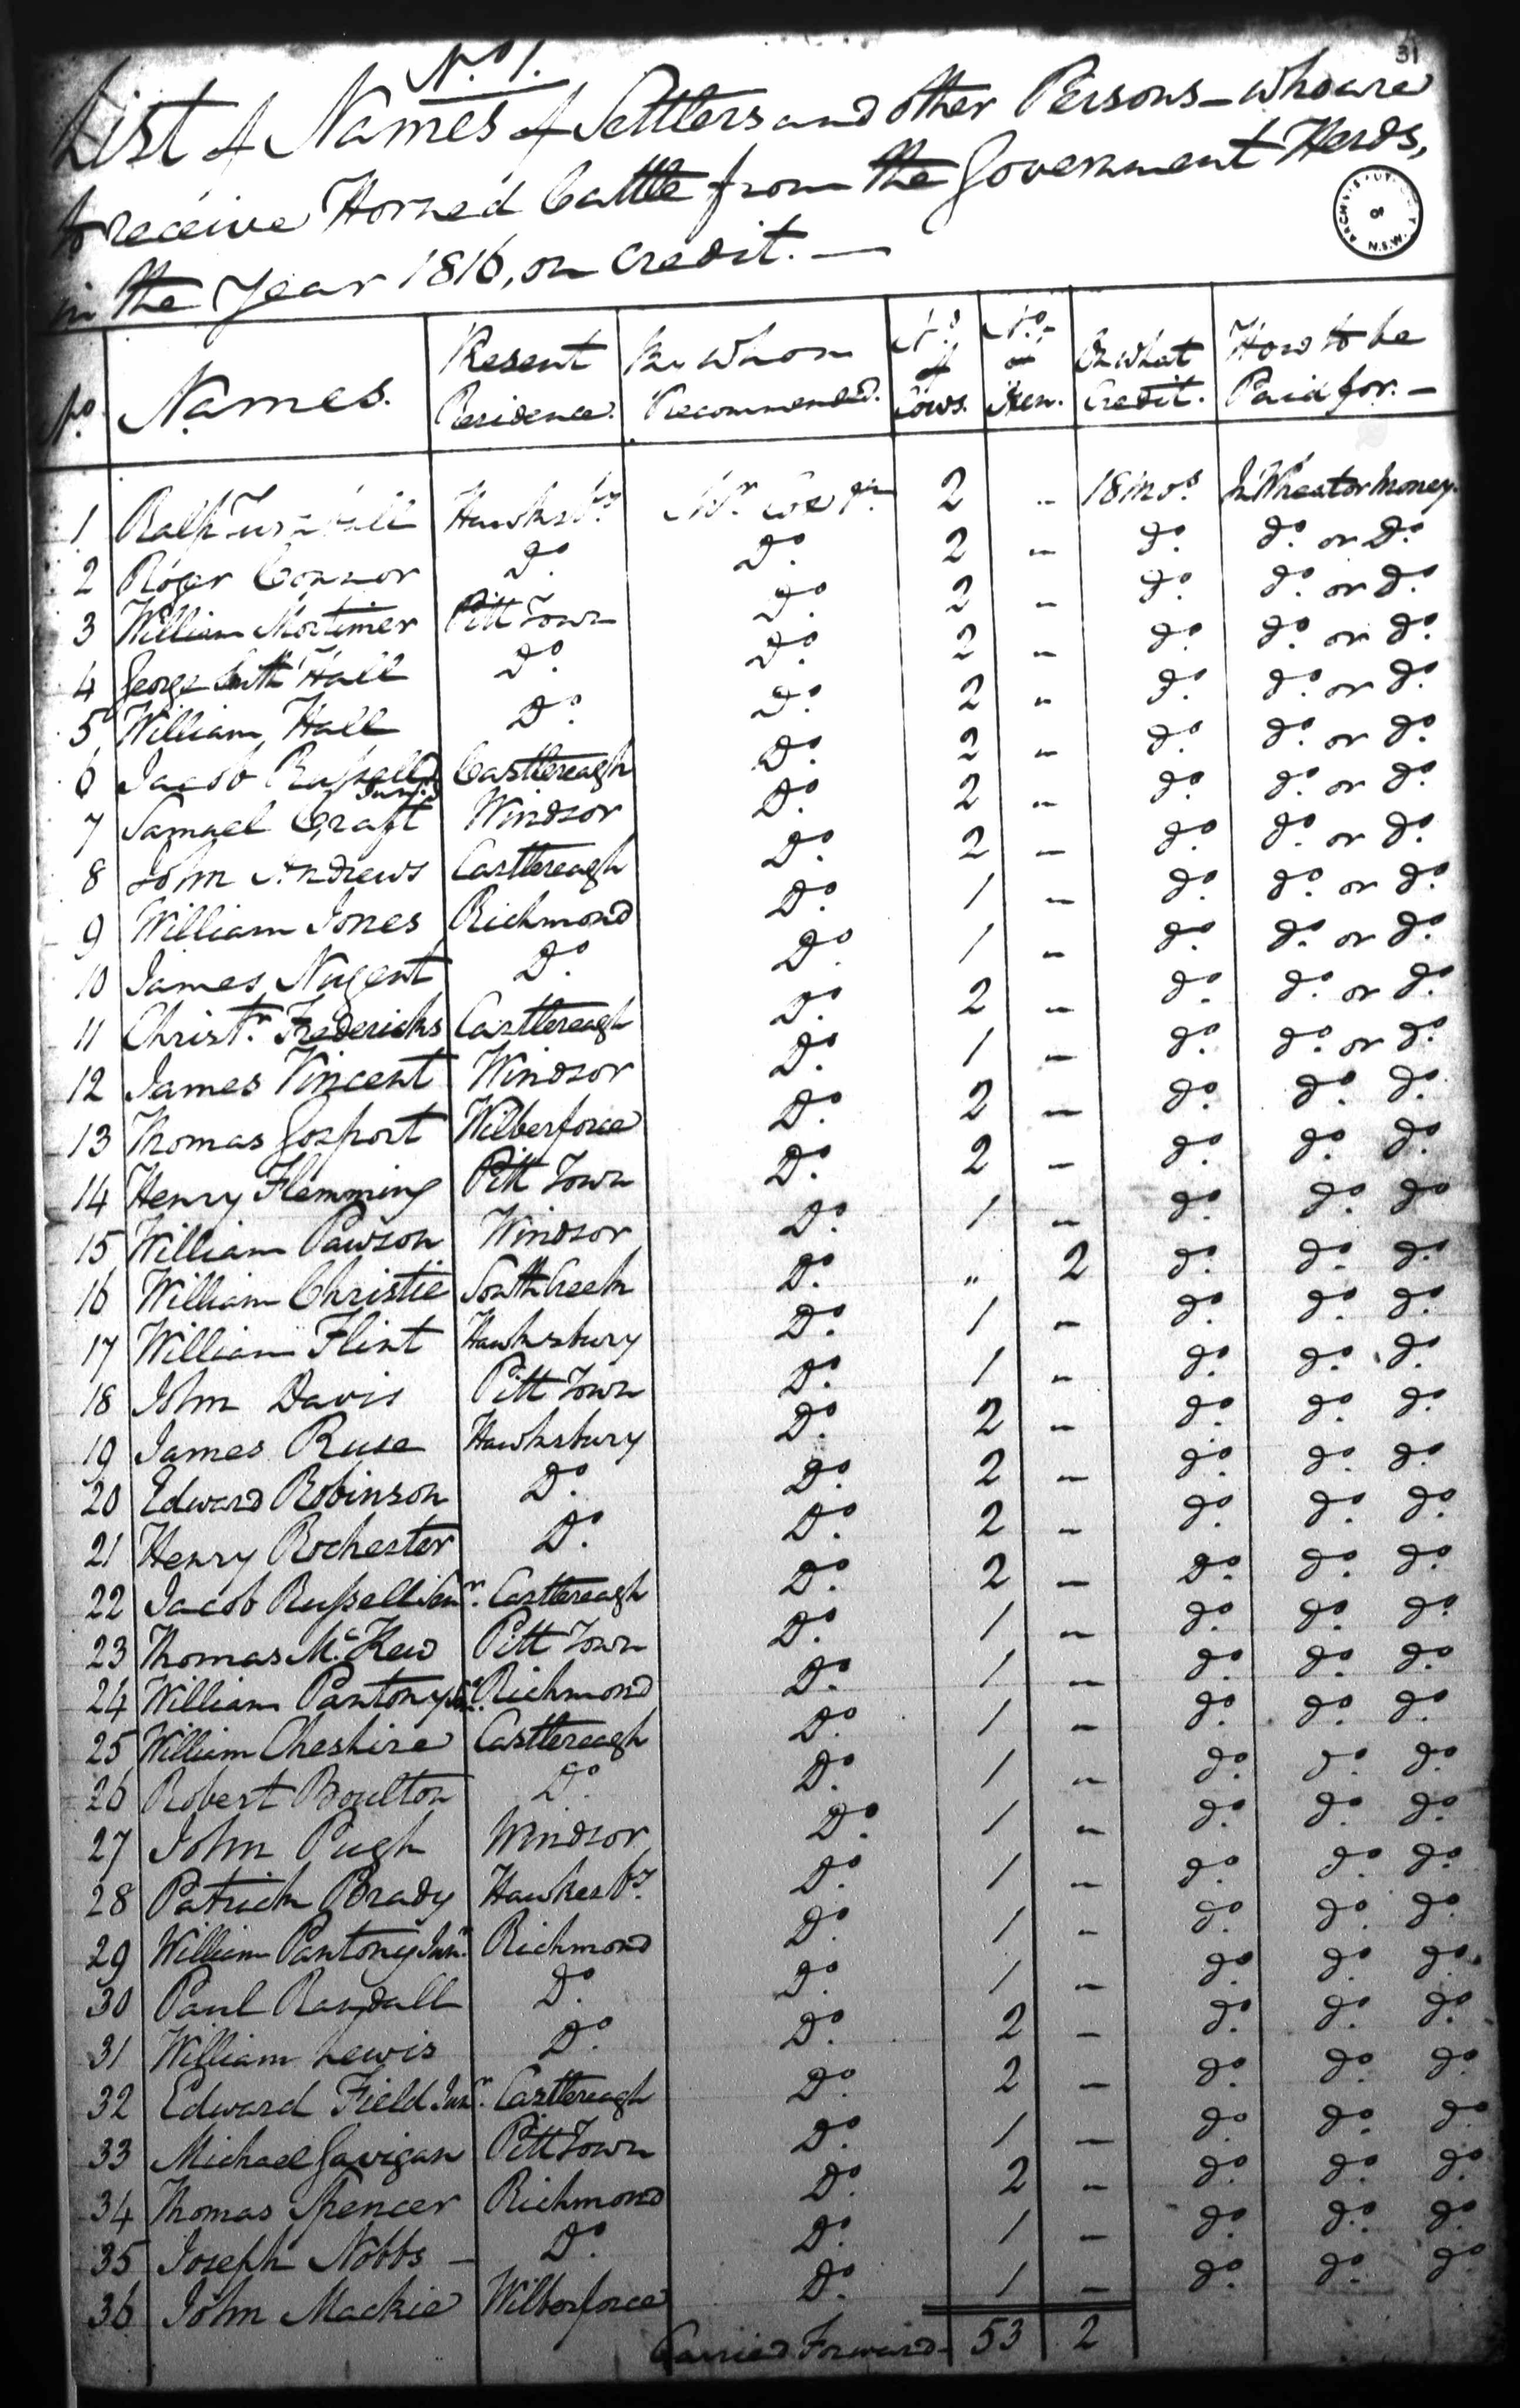 31
No. 1.
List of Names of Settlers and other Persons - who are
to receive Horned Cattle from the Government Herds,
in the Year 1816, on Credit. -
No. Names. Present Residence. By Whom Recommended. No. of Cows. No. of Oxen. On What Credit. How to be Paid for. -
1 Ralph Hawksby. Mr. Cox 2 " 18 mos. In Wheat or Money.
2 Roger Connor Do. Do. 2 " do. do. or Do.
3 William Mortimer Pitt Town Do. 2 " do. do. or do.
4 George Smith Hall Do. Do. 2 " do. do. or do.
5 William Hall Do. Do. 2 " do. do. or do.
6 Jacob Russell Junr. Castlereagh Do. 2 " do. do. or do.
7 Samuel Craft Windsor Do. 2 " do. do. or do.
8 John Andrews Castlereagh Do. 2 - do. do. or do.
9 William Jones Richmond Do. 1 - do. do. or do.
10 James Nugent Do. Do. 1 " do. do. or do.
11 Christr. Fredericks Castlereagh Do. 2 - do. do. or do.
12 James Vincent Windsor Do. 1 - do. do. or do.
13 Thomas Gosport Wilberforce Do. 2 - do. do. do.
14 Henry Flemming Pitt Town Do. 2 - do. do. do.
15 William Pawson Windsor Do. 1 " do. do. do.
16 William Christie South Creek Do. " 2 do. do. do.
17 William Flint Hawksbury Do. 1 - do. do. do.
18 John Davis Pitt Town Do. 1 - do. do. do.
19 James Ruse Hawksbury Do. 2 - do. do. do.
20 Edward Robinson Do. Do. 2 - do. do. do.
21 Henry Rochester Do. Do. 2 - do. do. do.
22 Jacob Russell Senr. Castlereagh Do. 2 - Do. do. do.
23 Thomas McKew Pitt Town Do. 1 " do. do. do.
24 William Pantony Sr. Richmond Do. 1 - do. do. do.
25 William Cheshire Castlereagh Do. 1 - do. do. do.
26 Robert Boulton Do. Do. 1 " do. do. do.
27 John Pugh Windsor Do. 1 " do. do. do.
28 Patrick Brady Hawkesby. Do. 1 " do. do. do.
29 William Pantony Junr. Richmond Do. 1 - do. do. do.
30 Paul Randall Do. Do. 1 - do. do. do.
31 William Lewis Do. Do. 2 - do. do. do.
32 Edward Field Junr. Castlereagh Do. 2 - do. do. do.
33 Michael Gavigan Pitt Town Do. 1 - do. do. do.
34 Thomas Spencer Richmond Do. 2 - do. do. do.
35 Joseph Nobbs - Do. Do. 1 - do. do. do.
36 John Mackie Wilberforce Do. 1 - do. do. do.
Carried Forward - 53 2